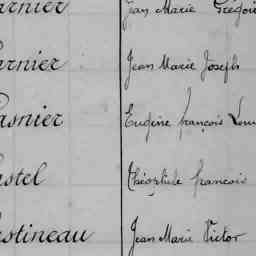 arnier Jean Marie Grégoi
arnier Jean Marie Joseph
asnier Eugène françois Loui
astel Théophile francois
astineau Jean Marie Victor